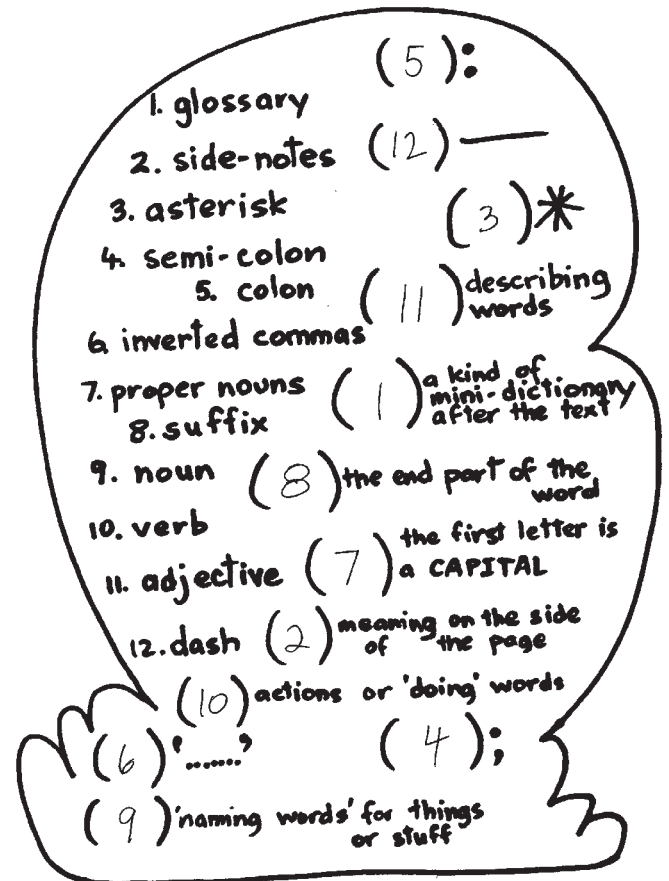 (5) :
1. glossary
2. side-notes (12) —
3. asterisk (3) *
4. semi-colon
5. colon (11) describing
words
6. inverted commas
7. proper nouns (1) a kind of
mini-dictionary
after the text
8. suffix
9. noun (8) the end part of the
word
10. verb
11. adjective (7) the first letter is
a CAPITAL
12. dash (2) meaning on the side
of the page
(10) actions or 'doing' words
(6) '.......' (4) ;
(9) 'naming words' for things
or stuff